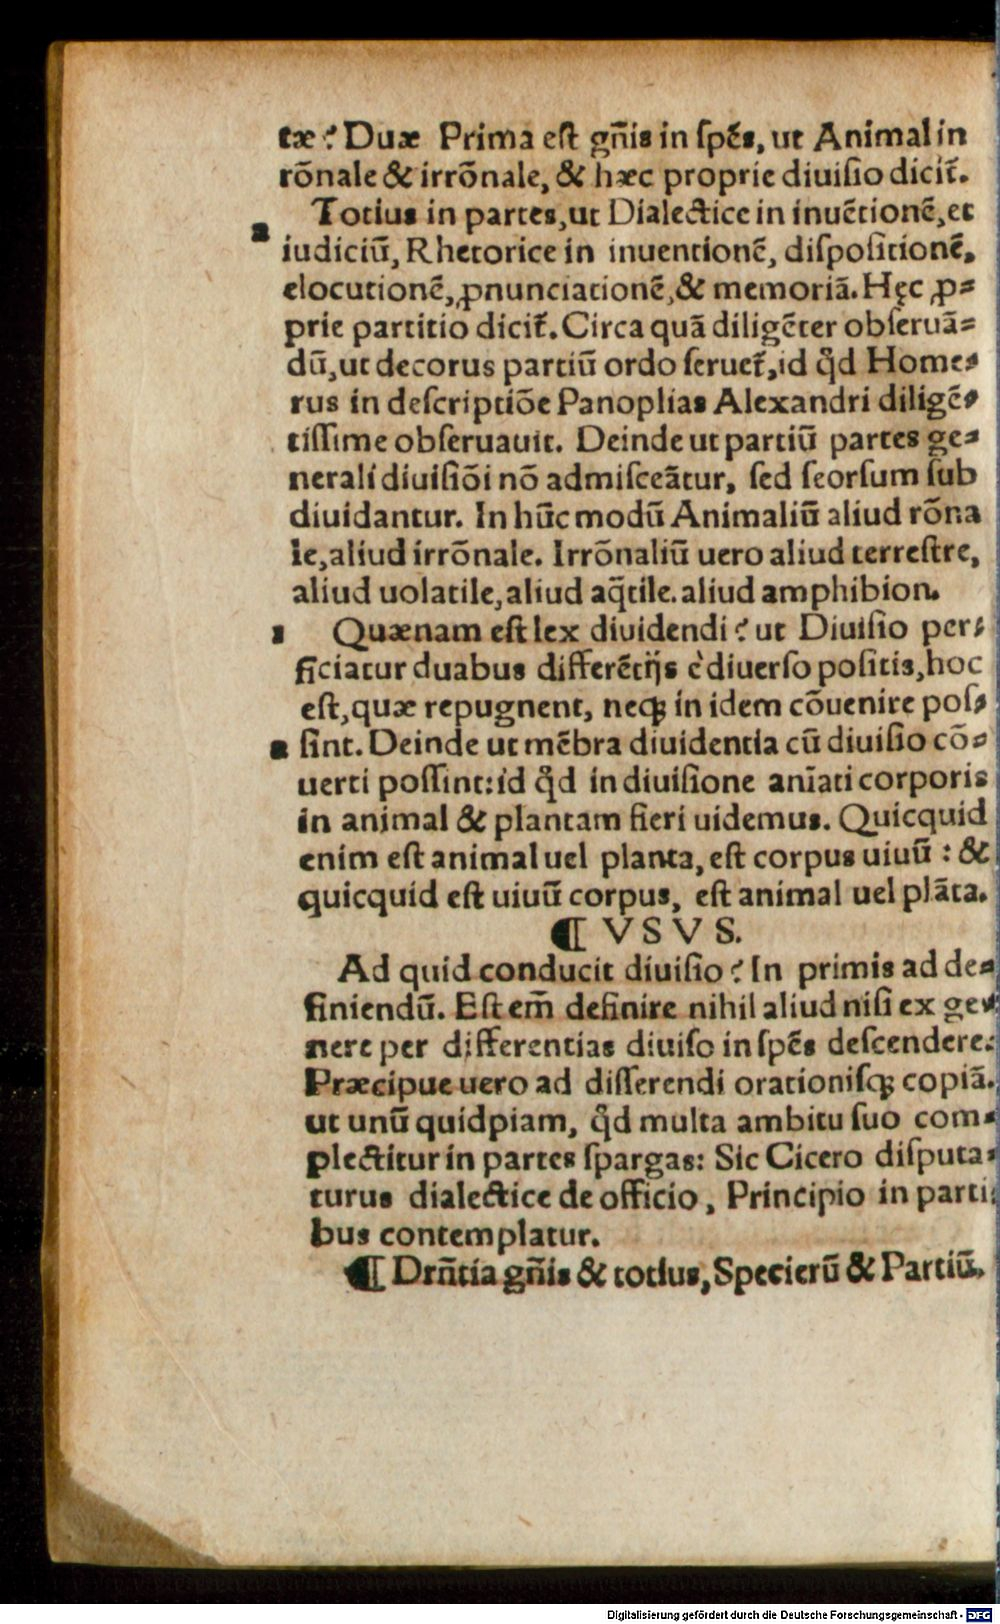 tæ? Duæ Prima est gñis in spēs, ut Animal in
rōnale & irrōnale, & hæc proprie diuisio dicit̃.
2 Totius in partes, ut Dialectice in inuētionē, et
iudiciū, Rhetorice in inuentionē, dispositionē,
elocutionē, ꝓnunciationē, & memoriā. Hęc ꝓ=
prie partitio dicit̃. Circa quā diligēter obseruā=
dū, ut decorus partiū ordo seruet̃, id qd̓ Home=
rus in descriptiōe Panoplias Alexandri diligē=
tissime obseruauit. Deinde ut partiū partes ge=
nerali diuisiōi nō admisceātur, sed seorsum sub
diuidantur. In hūc modū Animaliū aliud rōna
le, aliud irrōnale. Irrōnaliū uero aliud terrestre,
aliud uolatile, aliud aq̄tile. aliud amphibion.
1 Quænam est lex diuidendi? ut Diuisio per=
ficiatur duabus differētijs è diuerso positis, hoc
est, quæ repugnent, neqꝫ in idem cōuenire pos=
2 sint. Deinde ut mēbra diuidentia cū diuisio cō=
uerti possint: id qd̓ in diuisione anīati corporis
in animal & plantam fieri uidemus. Quicquid
enim est animal uel planta, est corpus uiuū: &
quicquid est uiuū corpus, est animal uel plāta.
¶ VSVS.
Ad quid conducit diuisio? In primis ad de=
finiendū. Est em̄ definire nihil aliud nisi ex ge=
nere per differentias diuiso in spēs descendere.
Præcipue uero ad disserendi orationisqꝫ copiā.
ut unū quidpiam, qd̓ multa ambitu suo com=
plectitur in partes spargas: Sic Cicero disputa=
turus dialectice de officio, Principio in parti
bus contemplatur.
¶ Drn̄tia gñis & totius, Specierū & Partiū.
Digitalisierung gefördert durch die Deutsche Forschungsgemeinschaft - DFG